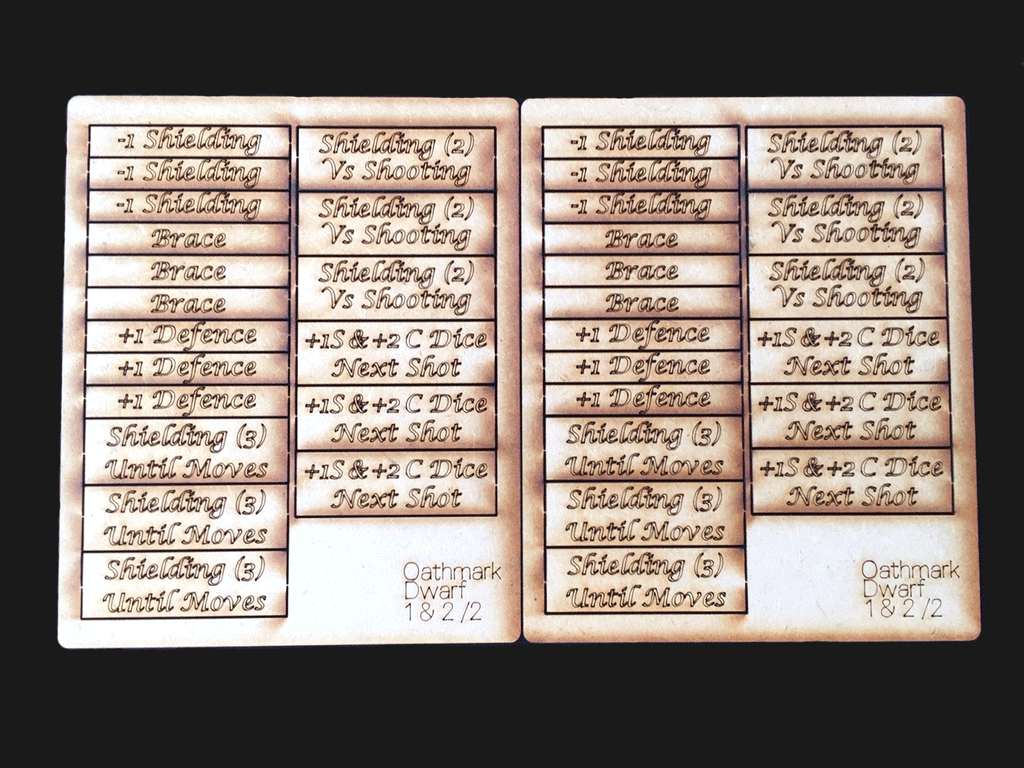 -1 Shielding
-1 Shielding
-1 Shielding
Brace
Brace
Brace
+1 Defence
+1 Defence
+1 Defence
Shielding (3)
Until Moves
Shielding (3)
Until Moves
Shielding (3)
Until Moves
Shielding (2)
Vs Shooting
Shielding (2)
Vs Shooting
Shielding (2)
Vs Shooting
+1S & +2 C Dice
Next Shot
+1S & +2 C Dice
Next Shot
+1S & +2 C Dice
Next Shot
Oathmark
Dwarf
1 & 2 /2
-1 Shielding
-1 Shielding
-1 Shielding
Brace
Brace
Brace
+1 Defence
+1 Defence
+1 Defence
Shielding (3)
Until Moves
Shielding (3)
Until Moves
Shielding (3)
Until Moves
Shielding (2)
Vs Shooting
Shielding (2)
Vs Shooting
Shielding (2)
Vs Shooting
+1S & +2 C Dice
Next Shot
+1S & +2 C Dice
Next Shot
+1S & +2 C Dice
Next Shot
Oathmark
Dwarf
1 & 2 /2